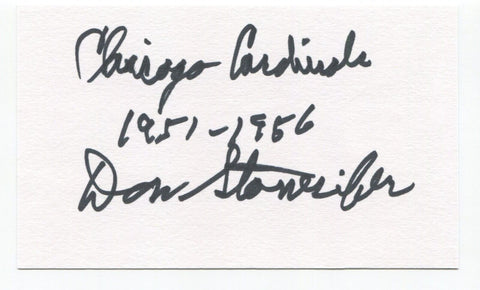 Chicago Cardinals
1951-1956
Don Stonesifer